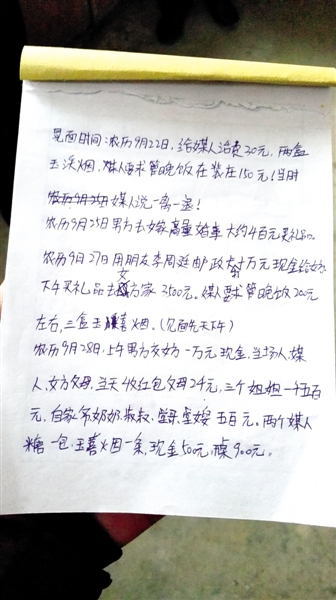 见面时间:农历9月22日,给媒人浩费30元,两盒
玉溪烟,媒人要求管晚饭在装在150元(当时
媒人说一离一退!
农历9月25日男方去嫁商量婚事大约4百元买礼品。
农历9月27日用朋友李周廷邮政打1万元现金给女方
下午买礼品去女方家3500元。媒人要求管晚饭200元
左右,三盒玉喜烟。(见面先天下午)
农历9月28日,上午男方交女方一万元现金,当场人,媒
人,女方父母,当天4收红包父母24元,三个姐姐一千五百
元,自家爷奶奶,叔叔,五百元。两个媒人
糖一包,玉喜烟一条,现金50元,900元。